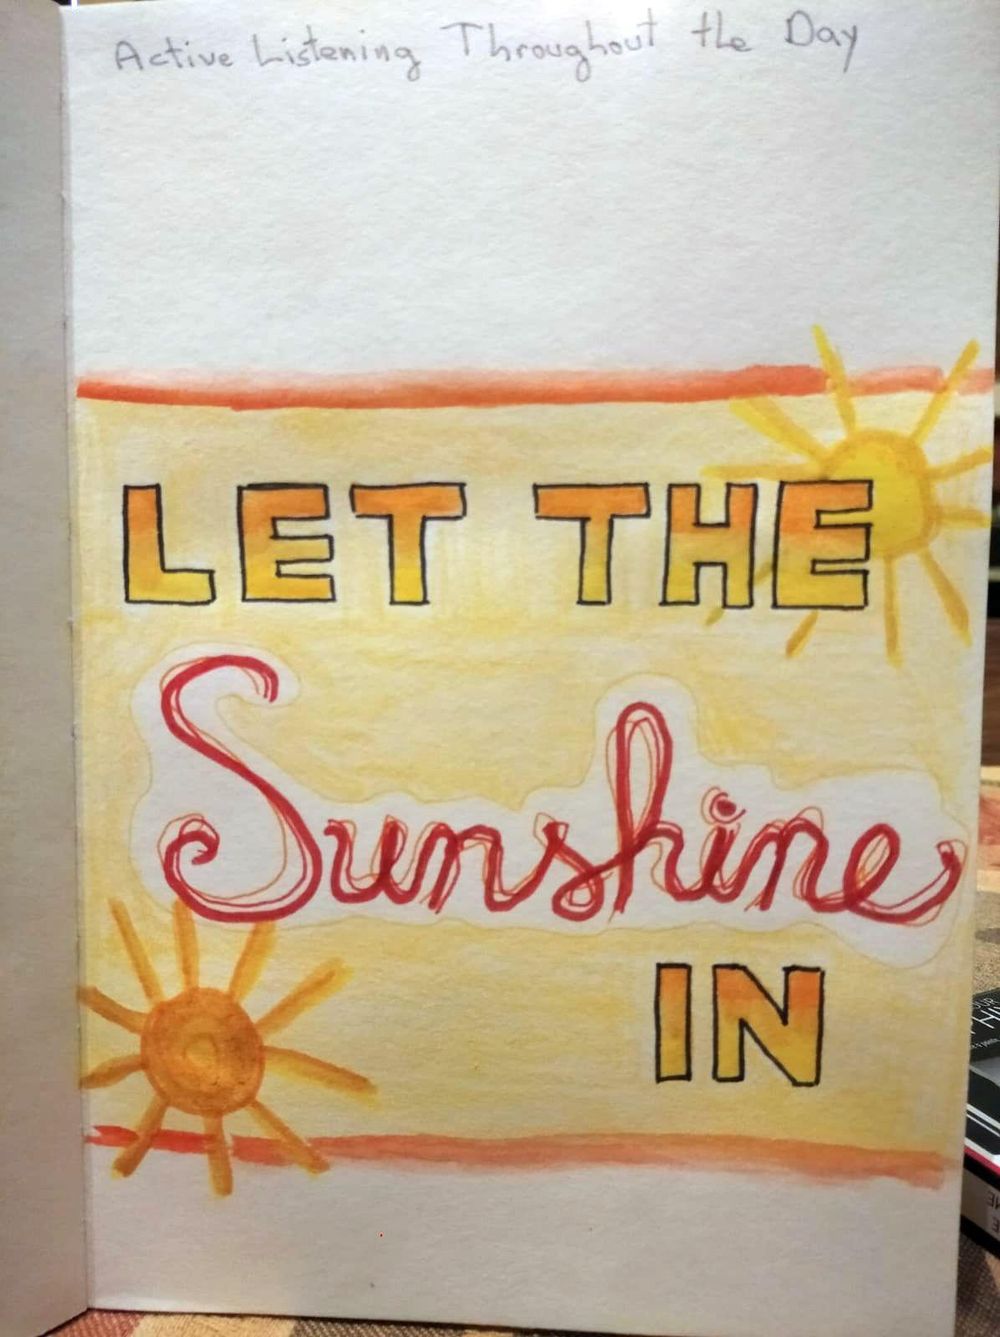 Active Listening Throughout the Day
LET THE
Sunshine
IN